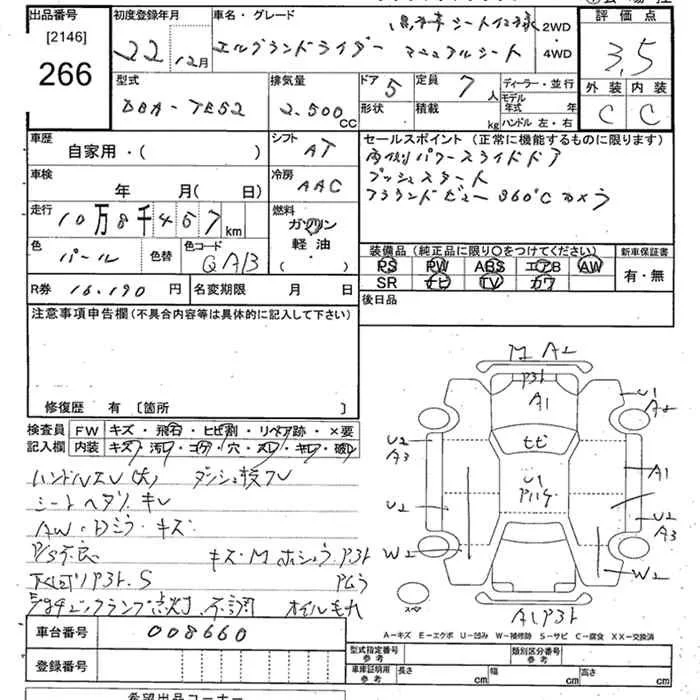 出品番号 初度登録年月 車名・グレード 黒本革シート仕様 2WD 評価点
[2146] 22 12月 エルグランドライダー マニュアルシート ・4WD 3,5
266
型式 排気量 ドア 5 定員 7人 ディーラー・並行 外装 内装
DBA-TE52 2.500cc 形状 ・ 積載 kg モデル年式 年 C C
ハンドル 左・右
車歴 シフト セールスポイント (正常に機能するものに限ります)
自家用・( ) AT 両側パワースライドドア
車検 冷房 プッシュスタート
年 月( 日) AAC アラウンドビュー 360°Cカメラ
走行 燃料
10万8千457km ガソリン
色 色替 色コード 軽油・
パール QAB (・)
装備品 (純正品に限り○をつけてください) 新車保証書
PS PW ABS エアB AW 有・無
SR ナビ TV カワ
R券 16.190 円 名変期限 月 日 後日品
注意事項申告欄(不具合内容等は具体的に記入して下さい)
修復歴 有 [箇所 ]
検査員 FW キズ・飛石・ヒビ割・リペア跡・×要
記入欄 内装 キズ・汚レ・コゲ・穴・スレ・キレ・破レ
シートヘタリ・キレ
AW・Dミラ・キズ
P/S不良 キズ・M ホシュウ P31
M A2
P31
A1
U1
A2
ヒビ
U2
A3
A1
U1
U2
U2
A3
W2
W2
スペ
A1 P31
A-キズ E-エクボ U-凹み W-補修跡 S-サビ C-腐食 XX-交換済
車台番号 008660
登録番号
型式指定番号 参考 類別区分番号 参考
車庫証明用 参考 長さ cm 幅 cm 高さ cm
希望出品コーナー